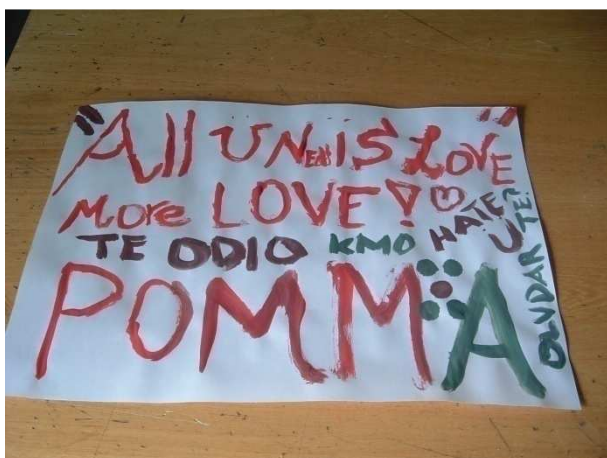 "All UNEN IS LOVE"
More LOVE!
TE ODIO KMO HATE U
OLVDARTE?
POMMA